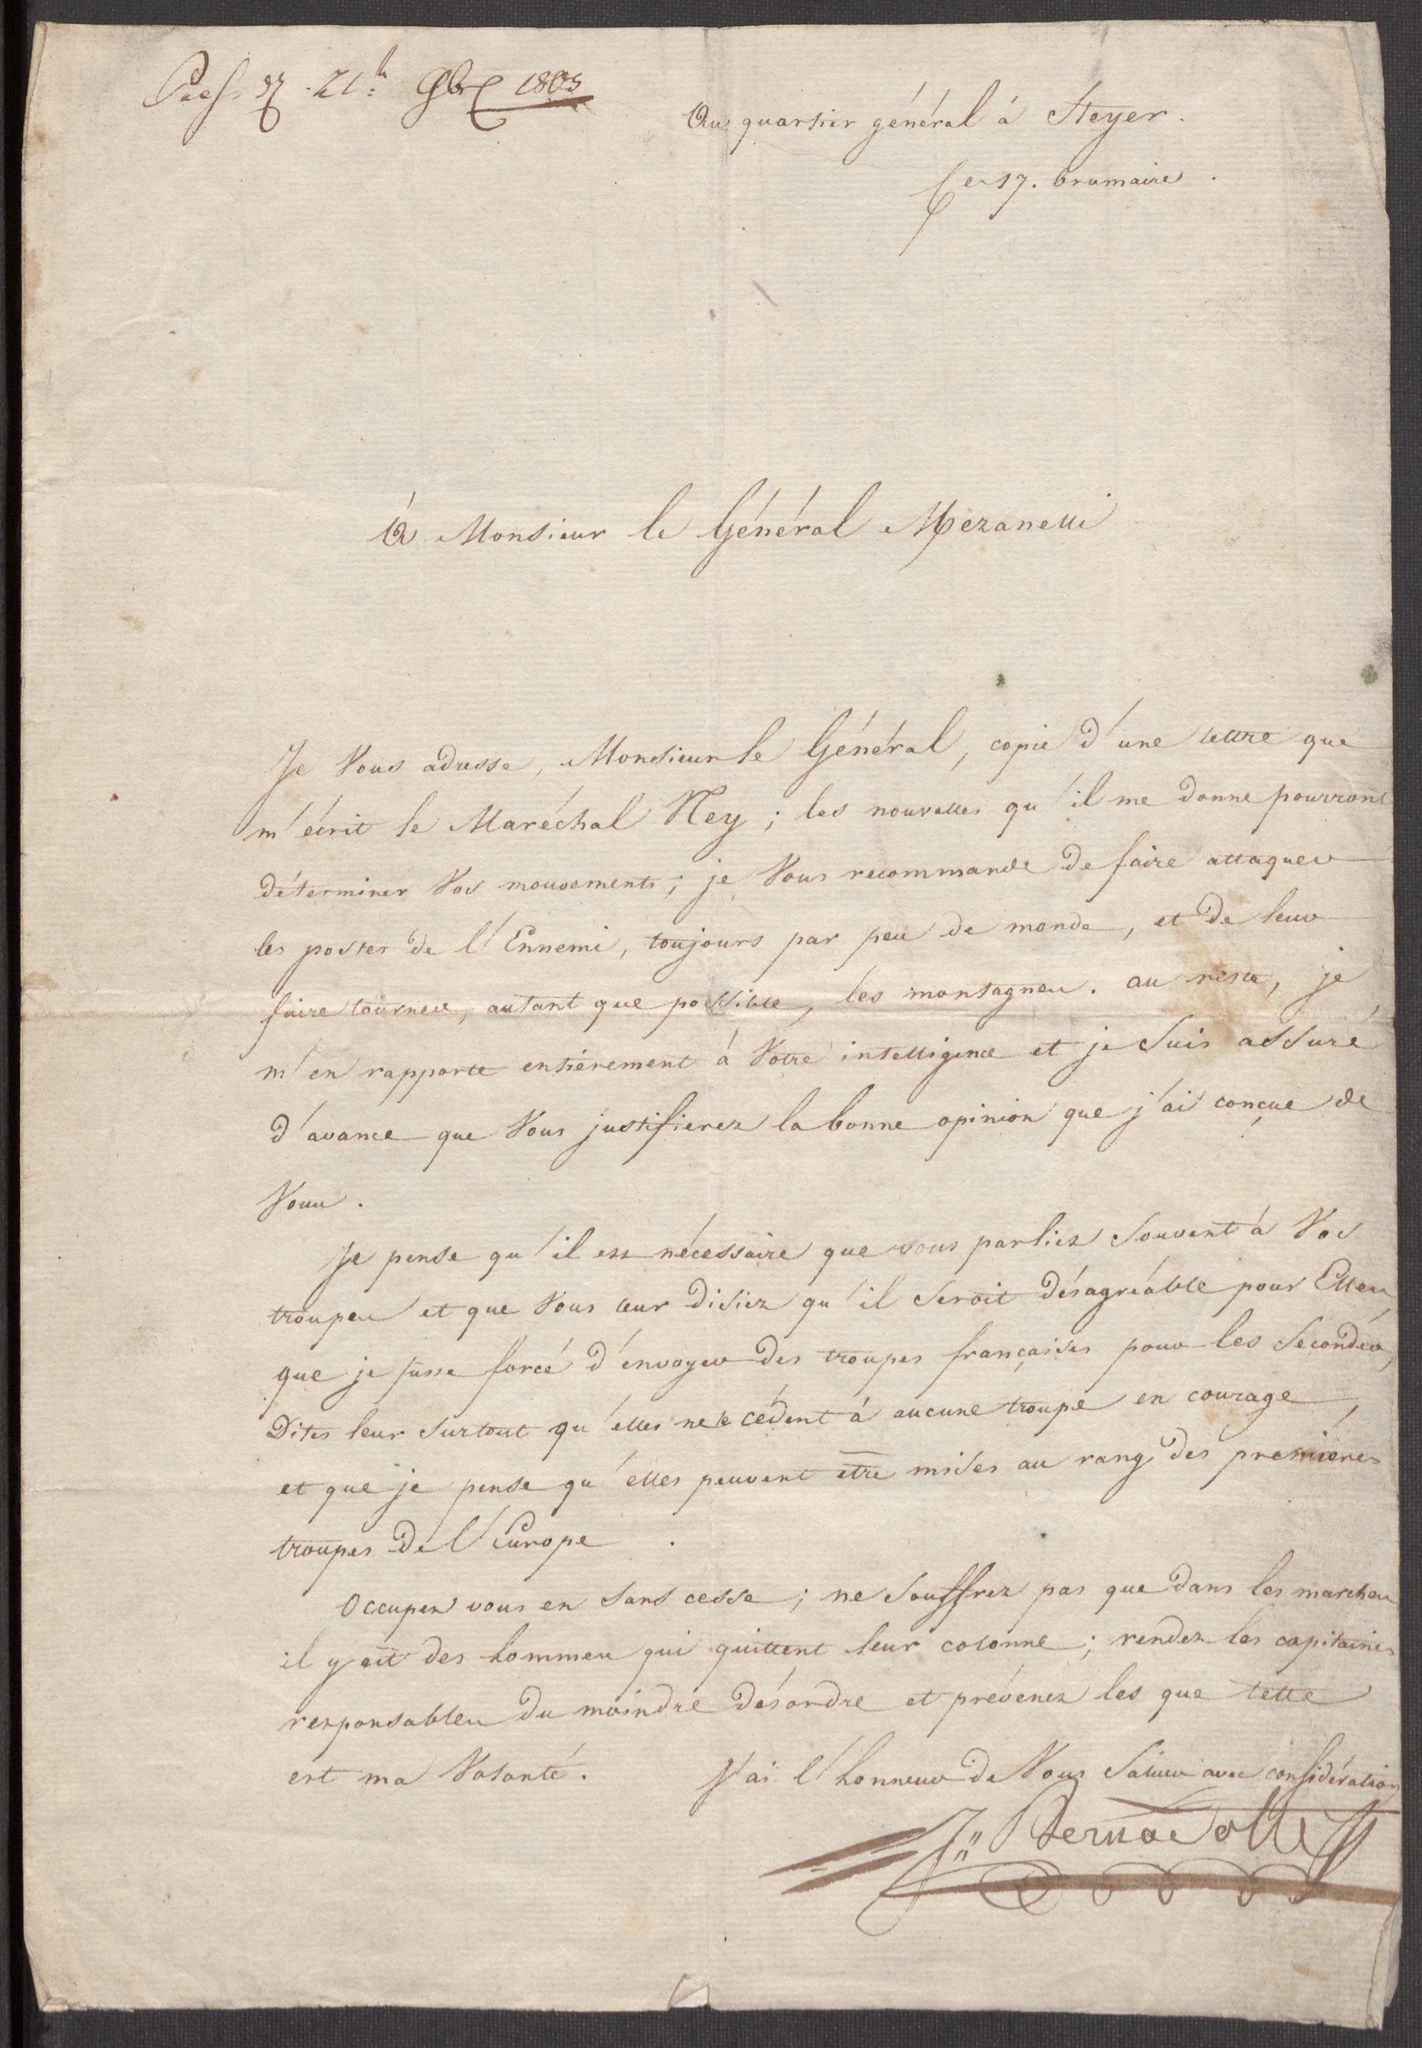 21t 9br 1805
Au quartier général à Steyer.
Le 17. brumaire.
A Monsieur le Général Mezanelli
Je Vous adresse, Monsieur le Général, copie d'une lettre que
m'écrit le Maréchal Ney; les nouvelles qu'il me donne pourront
déterminer Vos mouvements; je Vous recommande de faire attaquer
les postes de l'Ennemi, toujours par peu de monde, et de leur
faire tourner, autant que possible, les montagnes. au reste, je
m'en rapporte entièrement à Votre intelligence et je suis assuré
d'avance que Vous justifierez la bonne opinion que j'ai conçue de
Vous.
Je pense qu'il est nécessaire que vous parliez souvent à Vos
troupes et que Vous leur disiez qu'il seroit désagréable pour Elles,
que je fusse forcé d'envoyer des troupes françaises pour les seconder,
Dites leur surtout qu'elles ne le cédent à aucune troupe en courage,
et que je pense qu'elles peuvent être mises au rang des premières
troupes de l'Europe.
Occupez vous en sans cesse; ne souffrez pas que dans les marches
il y ait des hommes qui quittent leur colonne; rendez les capitaines
responsables du moindre désordre et prévenez les que telle
est ma Volonté. J'ai l'honneur de Vous Saluer avec considération
J:: Bernadotte